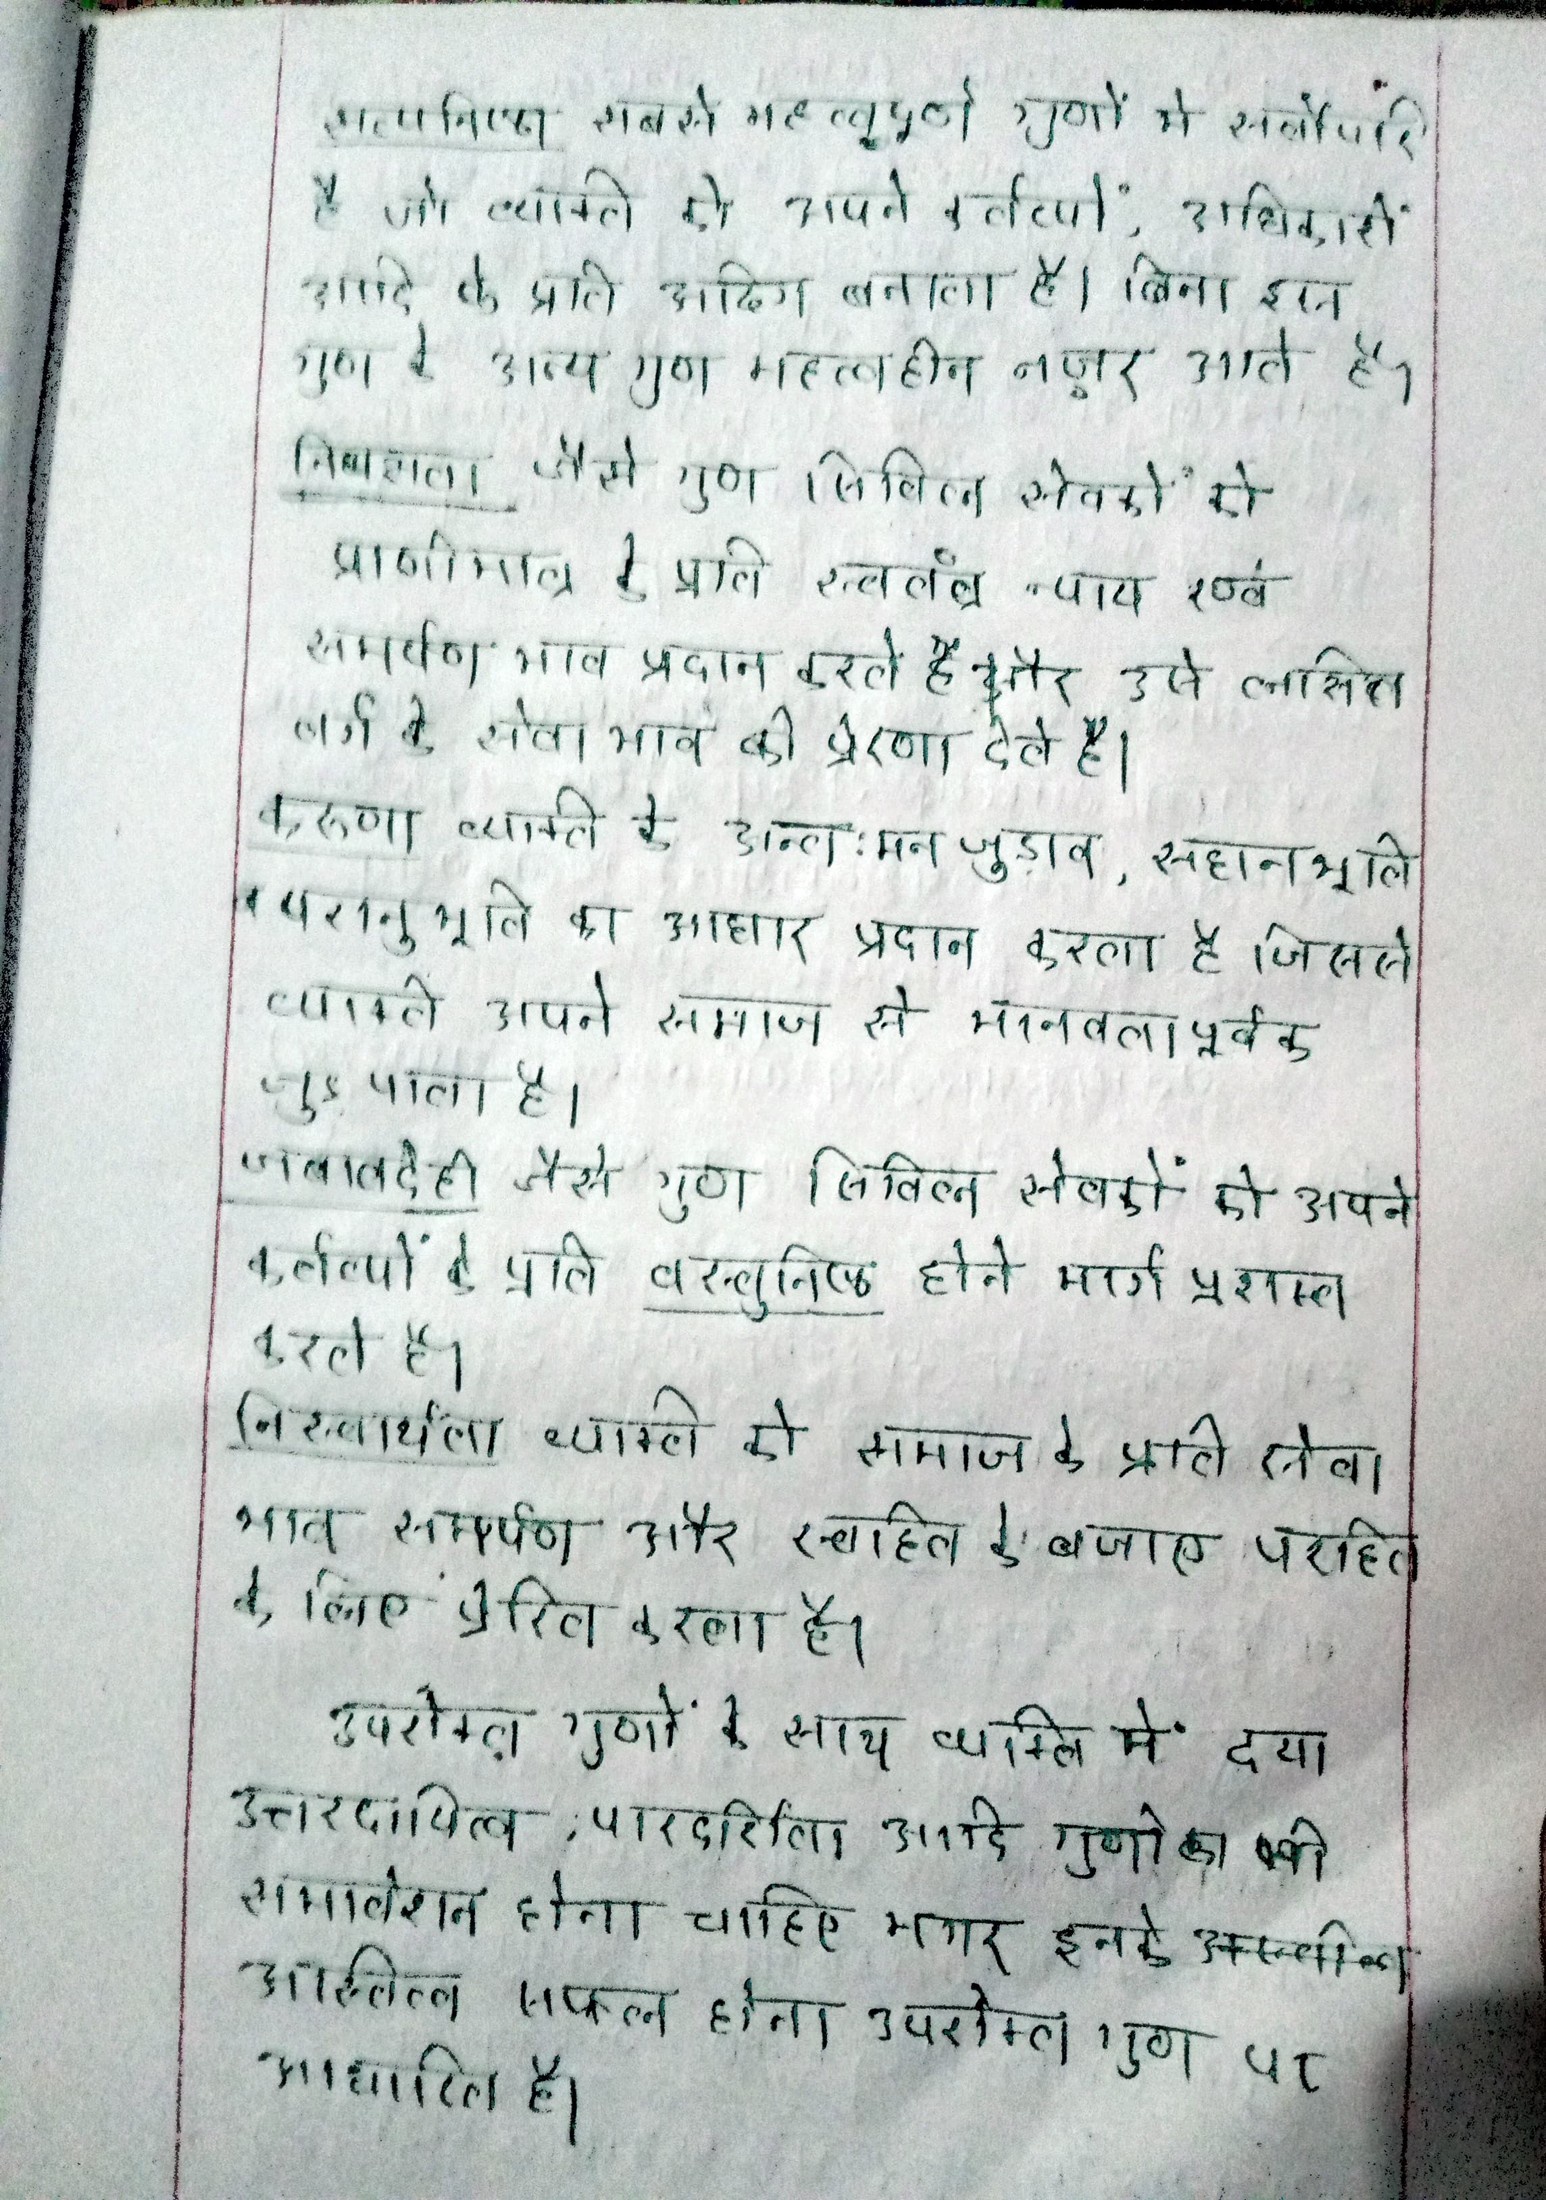 सत्यनिष्ठा सबसे महत्वपूर्ण गुणों मे सर्वोपरि
है जो व्यक्ति को अपने कर्तव्यों, अधिकारों
आदि के प्रति अडिग बनाता है। बिना इस
गुण के अन्य गुण महत्वहीन नज़र आते है।
निष्पक्षता जैसे गुण सिविल सेवकों को
प्राणीमात्र के प्रति स्वतंत्र न्याय एवं
समर्पण भाव प्रदान करते हैं और उसे
वर्ग के सेवा भाव की प्रेरणा देते है।
करूणा व्यक्ति के अन्त:मन जुड़ाव, सहानभूति
व परानुभूति का आधार प्रदान करता है जिससे
व्यक्ति अपने समाज से मानवतापूर्वक
जुड़ पाता है।
जबावदेही जैसे गुण सिविल सेवकों को अपने
कर्तव्यों के प्रति वस्तुनिष्ठ होने मार्ग प्रशस्त
करते है।
निस्वार्थता व्यक्ति को समाज के प्रति सेवा
भाव समर्पण और स्वहित के बजाए परहित
के लिए प्रेरित करता है।
उपरोक्त गुणों के साथ व्यक्ति में दया
उत्तरदायित्व, पारदर्शिता आदि गुणों का भी
समावेशन होना चाहिए मगर इनके
अस्तित्व सफल होना उपरोक्त गुण पर
आधारित है।